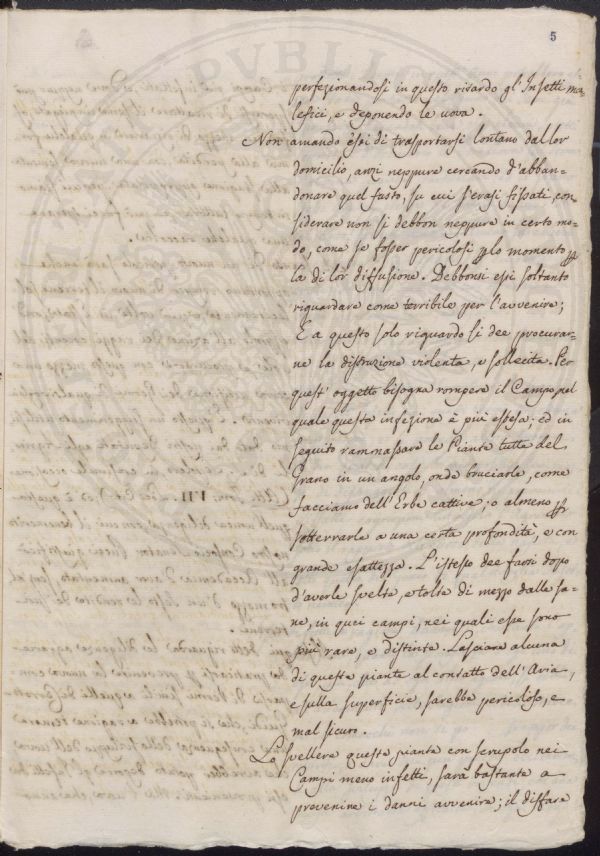 5
perfezionandosi in questo risardo gl'Insetti ma-
lefici, e deponendo le uova.
Non amando essi di trasportarsi lontano dal lor
domicilio, anzi neppure cercando d'abban-
donare quel fusto, su cui s'erasi fissati, con
siderare non si debbon neppure in certo mo-
do, come se fosser pericolosi plo momento p
la di lor diffusione. Debbonsi essi soltanto
riguardare come terribile per l'avvenire;
E a questo solo riguardo si dee procurar-
ne la distruzione violenta, e sollecita. Per
quest'oggetto bisogna rompere il Campo, nel
quale questa infezione è più estesa: ed in
seguito rammassare le Piante tutte del
Grano in un angolo, onde bruciarle, come
facciamo dell'Erbe cattive; o almeno p
sotterrarle a una certa profondità, e con
grande esattezza. L'istesso dee farsi dopo
d'averle svelte, e tolte di mezzo dalle sa-
ne, in quei campi, nei quali esse sono
più rare, e distinte. Lasciare alcuna
di queste piante al contatto dell'Aria,
e sulla superficie, sarebbe pericoloso, e
mal sicuro.
Lo svellere queste piante con scrupolo nei
Campi meno infetti, sarà bastante a
prevenire i danni avvenire; il disfare